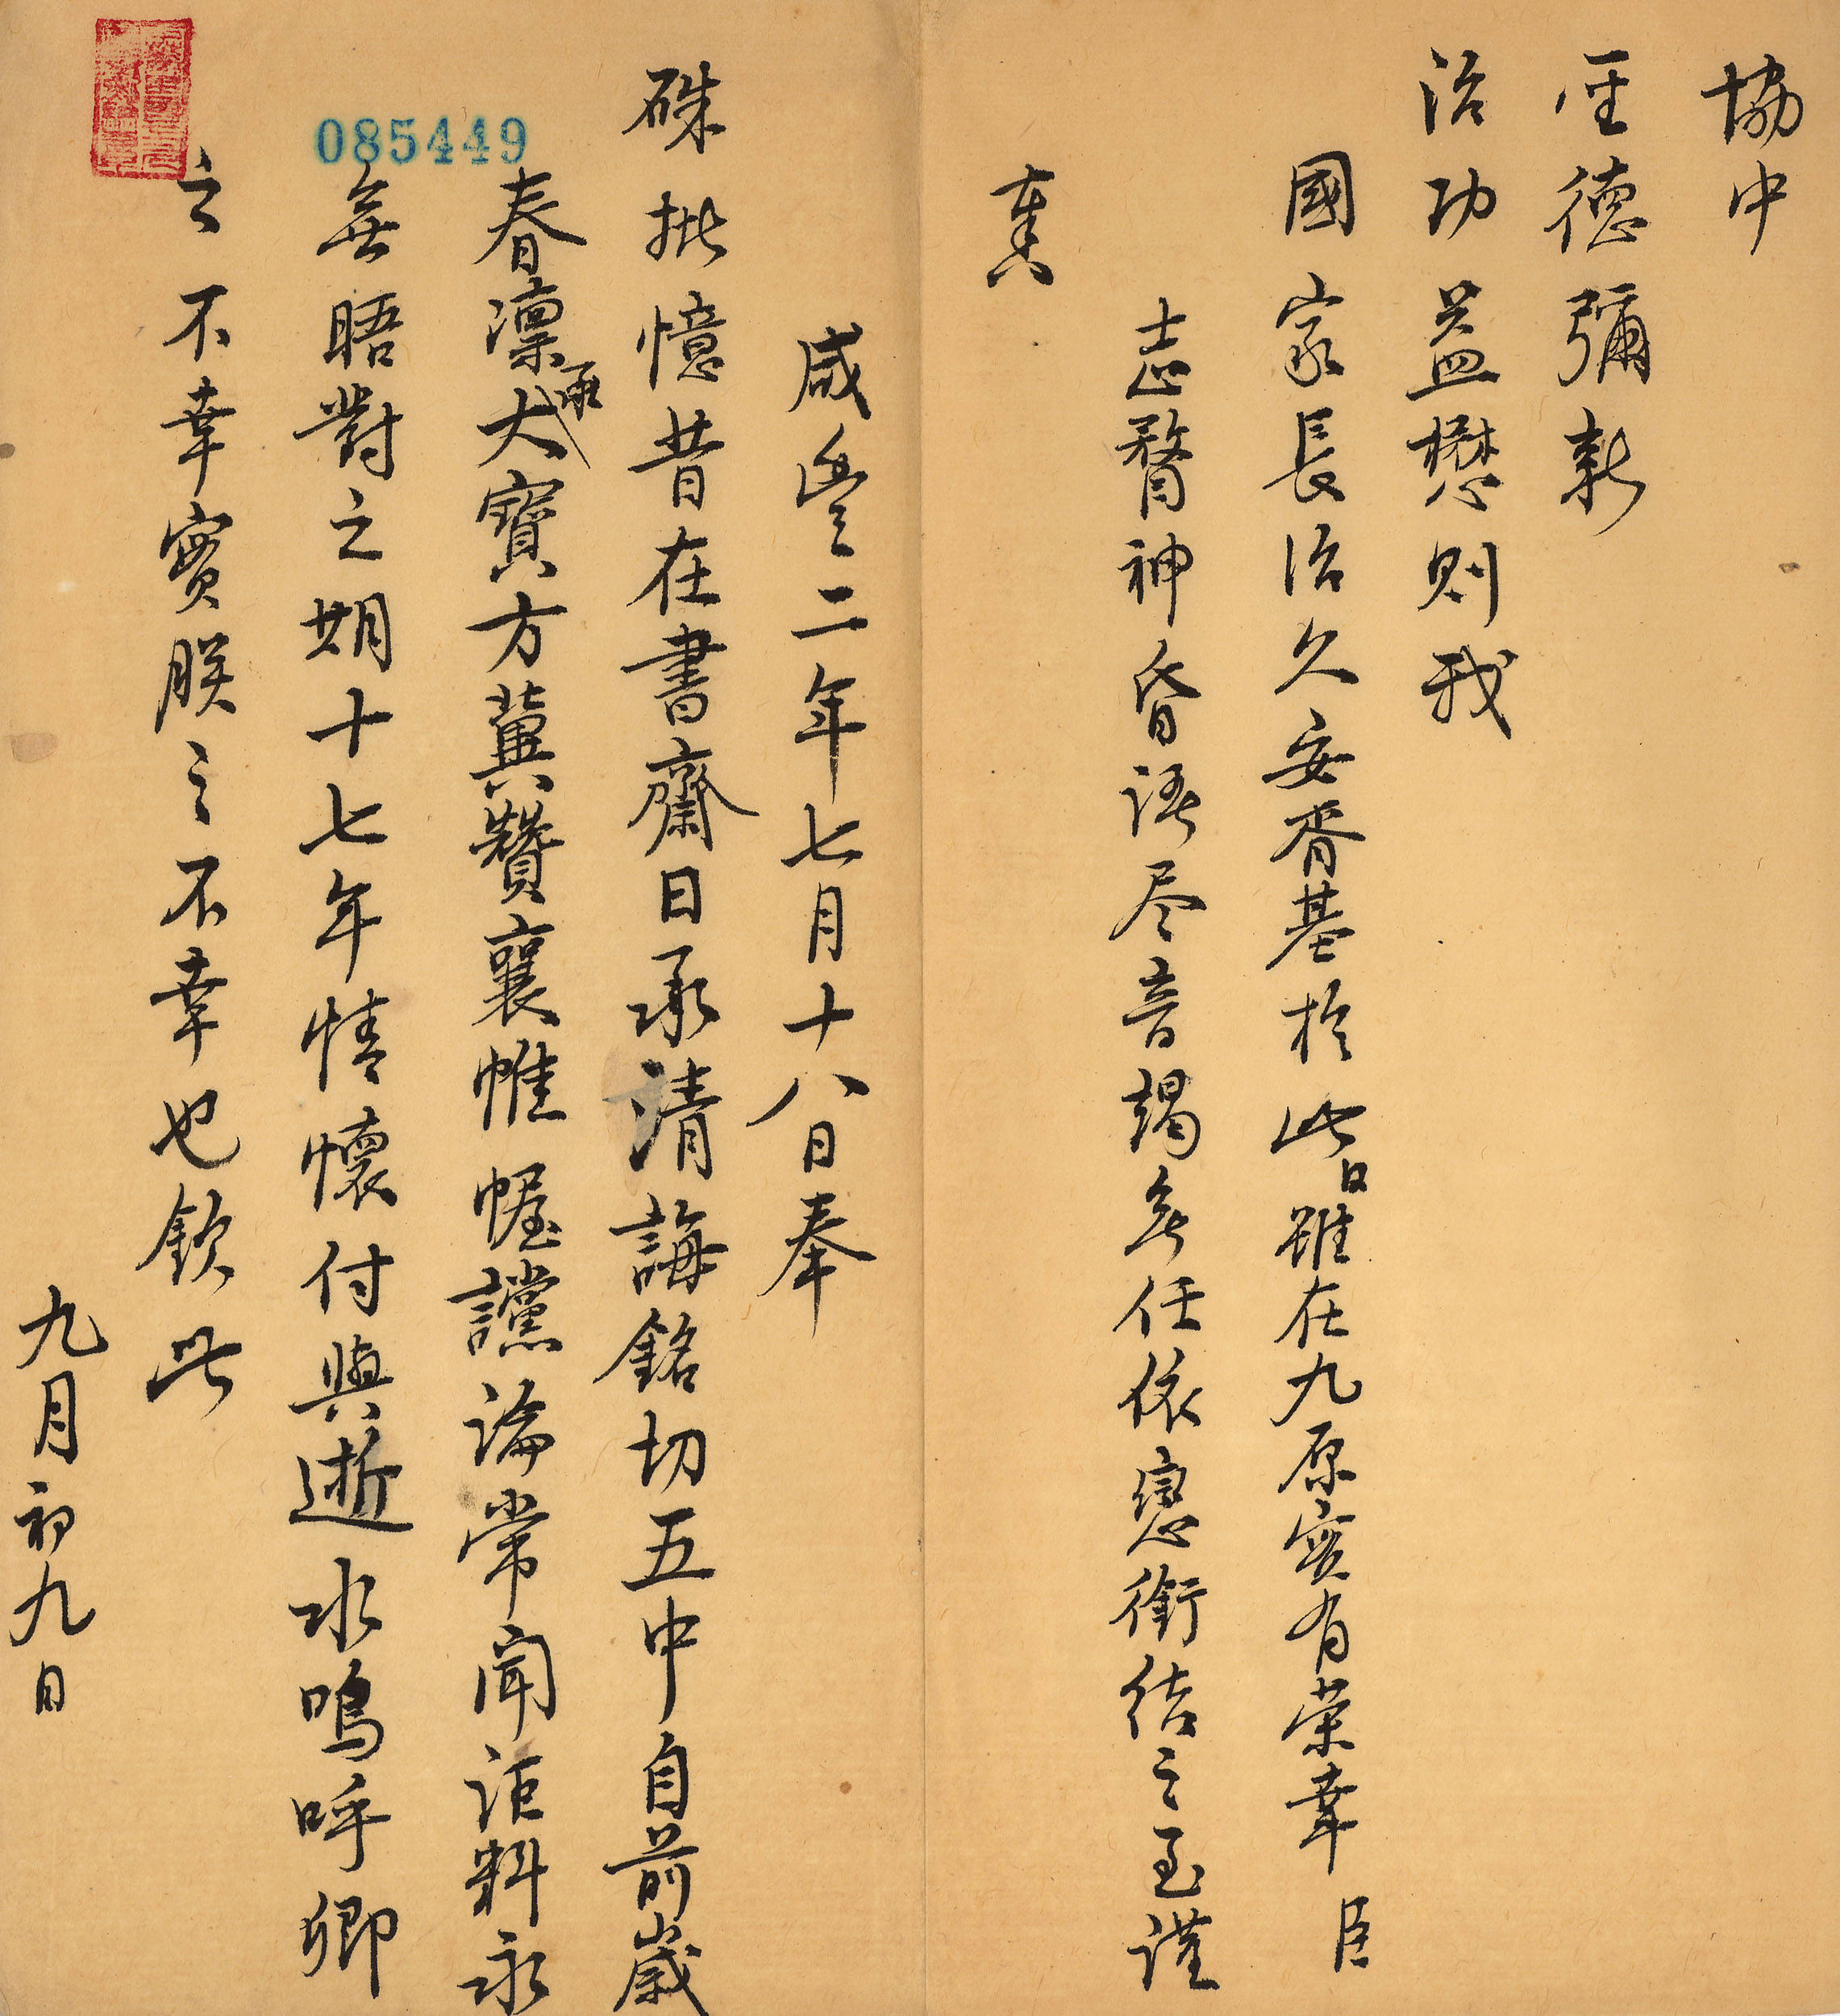 協中
聖德彌新
治功益懋則我
國家長治久安胥基於此臣雖在九原實有荣幸臣
志瞀神昏語尽音竭無任依戀銜結之至謹
奏
咸豐二年七月十八日奉
硃批憶昔在書齋日承清誨銘切五中自前歲
春凛承大寶方冀贊襄帷幄讜論常聞詎料永
無晤對之期十七年情懷付與逝水嗚呼卿
之不幸實朕之不幸也欽此
九月初九日
085449